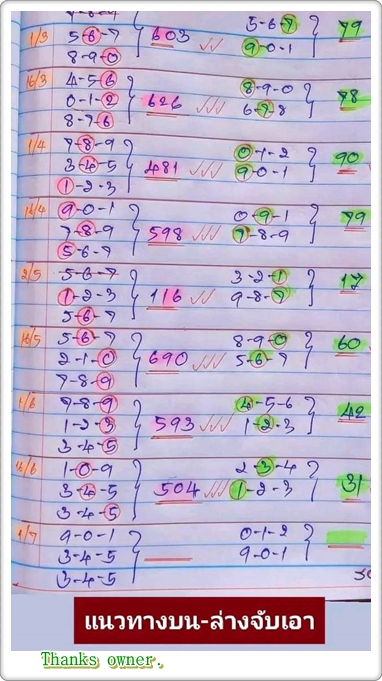 7-8-9
1/3 5-6-7 603 5-6-7 79
8-9-0 9-0-1
16/3 4-5-6 8-9-0
0-1-2 626 6-7-8 78
8-7-6
1/4 7-8-9 0-1-2
3-4-5 481 9-0-1 90
1-2-3
16/4 9-0-1 0-9-1 79
7-8-9 598 7-8-9
5-6-7
2/5 5-6-7 3-2-1 17
1-2-3 116 9-8-7
5-6-7
16/5 5-6-7 8-9-0 60
2-1-0 690 5-6-7
7-8-9
1/6 7-8-9 4-5-6 42
1-2-3 593 1-2-3
3-4-5
16/6 1-0-9 2-3-4
3-4-5 504 1-2-3 31
3-4-5
1/7 9-0-1 0-1-2
3-4-5 9-0-1
3-4-5
แนวทางบน-ล่างจับเอา
Thanks owner.